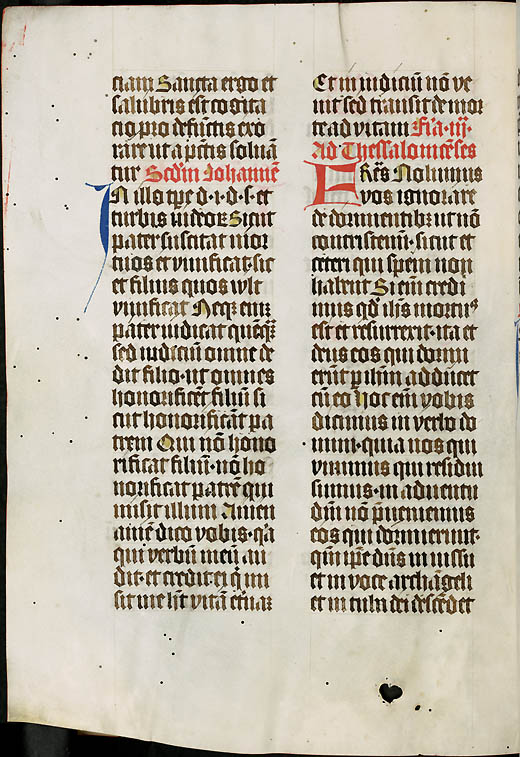 ciam Sancta ergo et
salubris est cogita
cio pro defūctis exo
rare ut a pctīs soluā
tur Scdm̄ Johannē
IN illo tpe d · i · d · s · et
turbis iudeor Sicut
pater suscitat mor
tuos et viuificat · sic
et filius quos wlt
viuificat Neqꝫ enī
pater iudicat quēqꝫ
sed iudiciū omne de
dit filio · ut omnes
honorificēt filiū si
cut honorificāt pa
trem Qui nō hono
rificat filiū · nō ho
norificat patrē qui
misit illum Amen
amē dico vobis · qa
qui verbū meū au
dit · et credit ei q̇ mi
sit me ht̄ vitā et̄nam
Et in iudiciū nō ve
nit sed transit de mor
te ad vitam Fīa · iij ·
Ad Thessalonicēses
FRēs Nolumus
vos ignorare
de dormientibꝫ ut nō
contristemī · sicut et
ceteri qui spēm non
habent Si em̄ credi
mus qd̄ ihs̄ mortuꝰ
est et resurrexit · ita et
deus eos qui dormi
erūt p ihm̄ adducet
cū eo Hoc em̄ vobis
dicimus in verbo do
mini · quia nos qui
viuimus qui residui
sumus · in aduentū
dn̄i nō p̄ueniemus
eos qui dormierūt ·
qm̄ ipe dn̄s in iussu
et in voce archāgeli
et in tuba dei descēdet